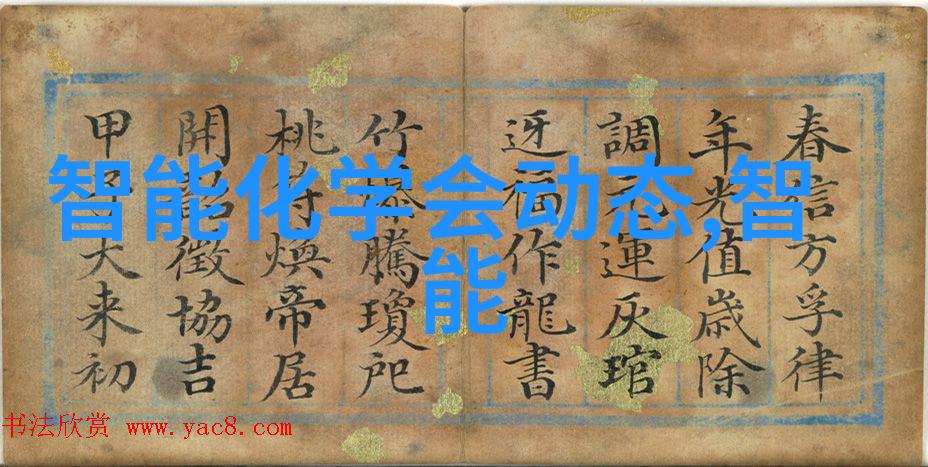 智能化学会动态,智
能
春信方孚律
年光值歲除
調元運灰琯
迓福作龍書
竹騰瓊
桃符煥帝居
開韶徵協吉
甲子大来初
书法欣赏 www.yac8.com